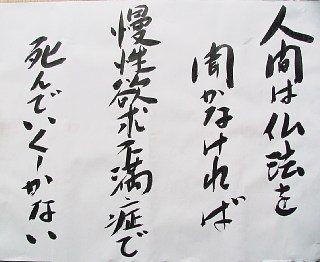 人間は仏法を
聞かなければ
慢性欲求不満症で
死んでいくしかない